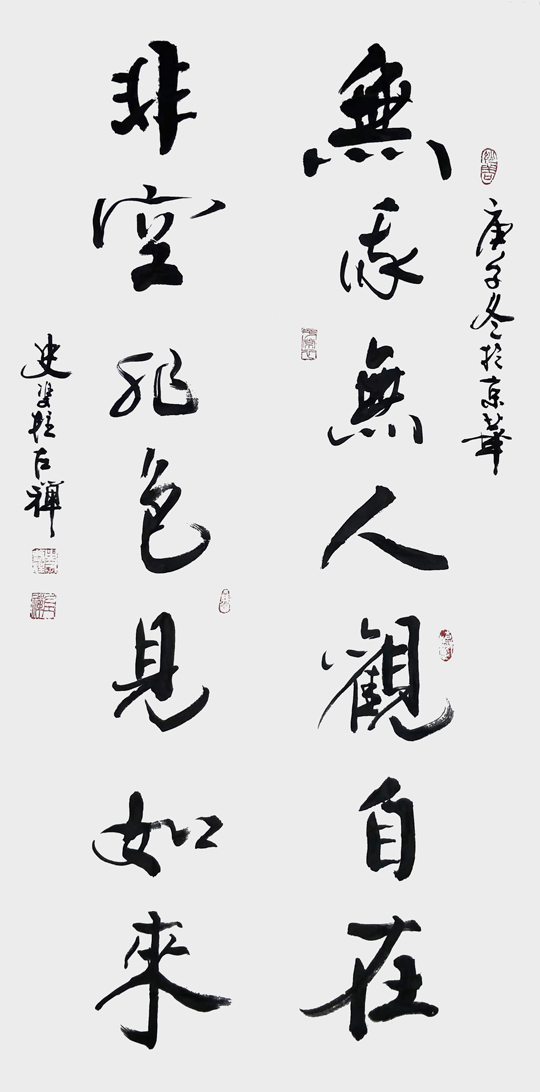 庚子冬於京華
無我無人觀自在
非空非色見如來
史雙柱禪